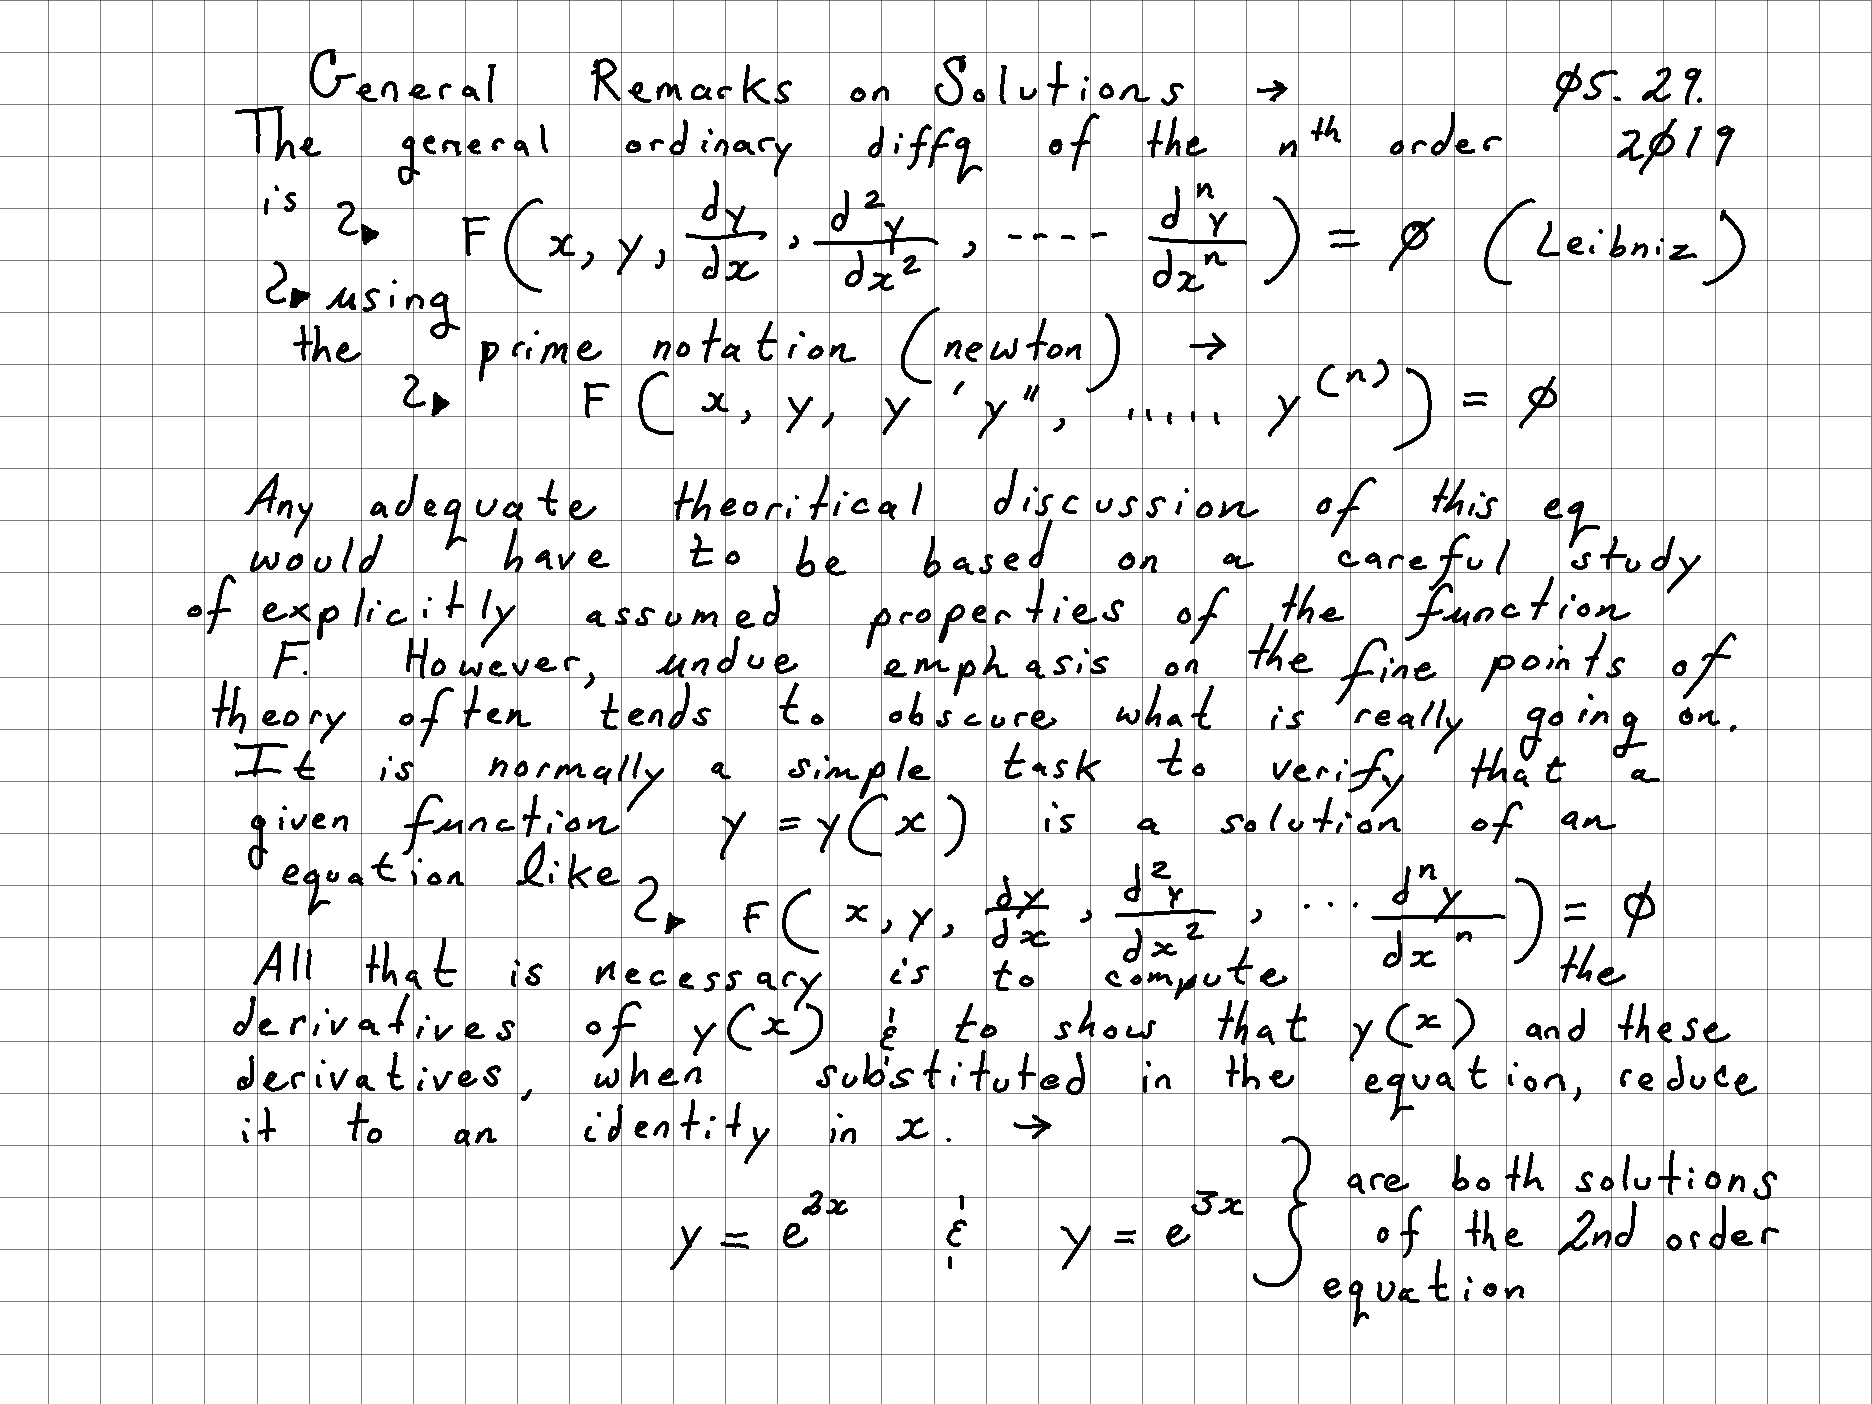 General Remarks on Solutions → Ø5. 29.
The general ordinary diffq of the nth order 2Ø19
is
F(x, y, dy/dx, d²y/dx², ---- dⁿy/dxⁿ) = Ø (Leibniz)
using
the prime notation (newton) →
F(x, y, y' y'', ..... y⁽ⁿ⁾) = Ø
Any adequate theoritical discussion of this eq
would have to be based on a careful study
of explicitly assumed properties of the function
F. However, undue emphasis on the fine points of
theory often tends to obscure what is really going on.
It is normally a simple task to verify that a
given function y = y(x) is a solution of an
equation like
F(x, y, dy/dx, d²y/dx², ... dⁿy/dxⁿ) = Ø
All that is necessary is to compute the
derivatives of y(x) & to show that y(x) and these
derivatives, when substituted in the equation, reduce
it to an identity in x. →
y = e²ˣ & y = e³ˣ } are both solutions
of the 2nd order
equation